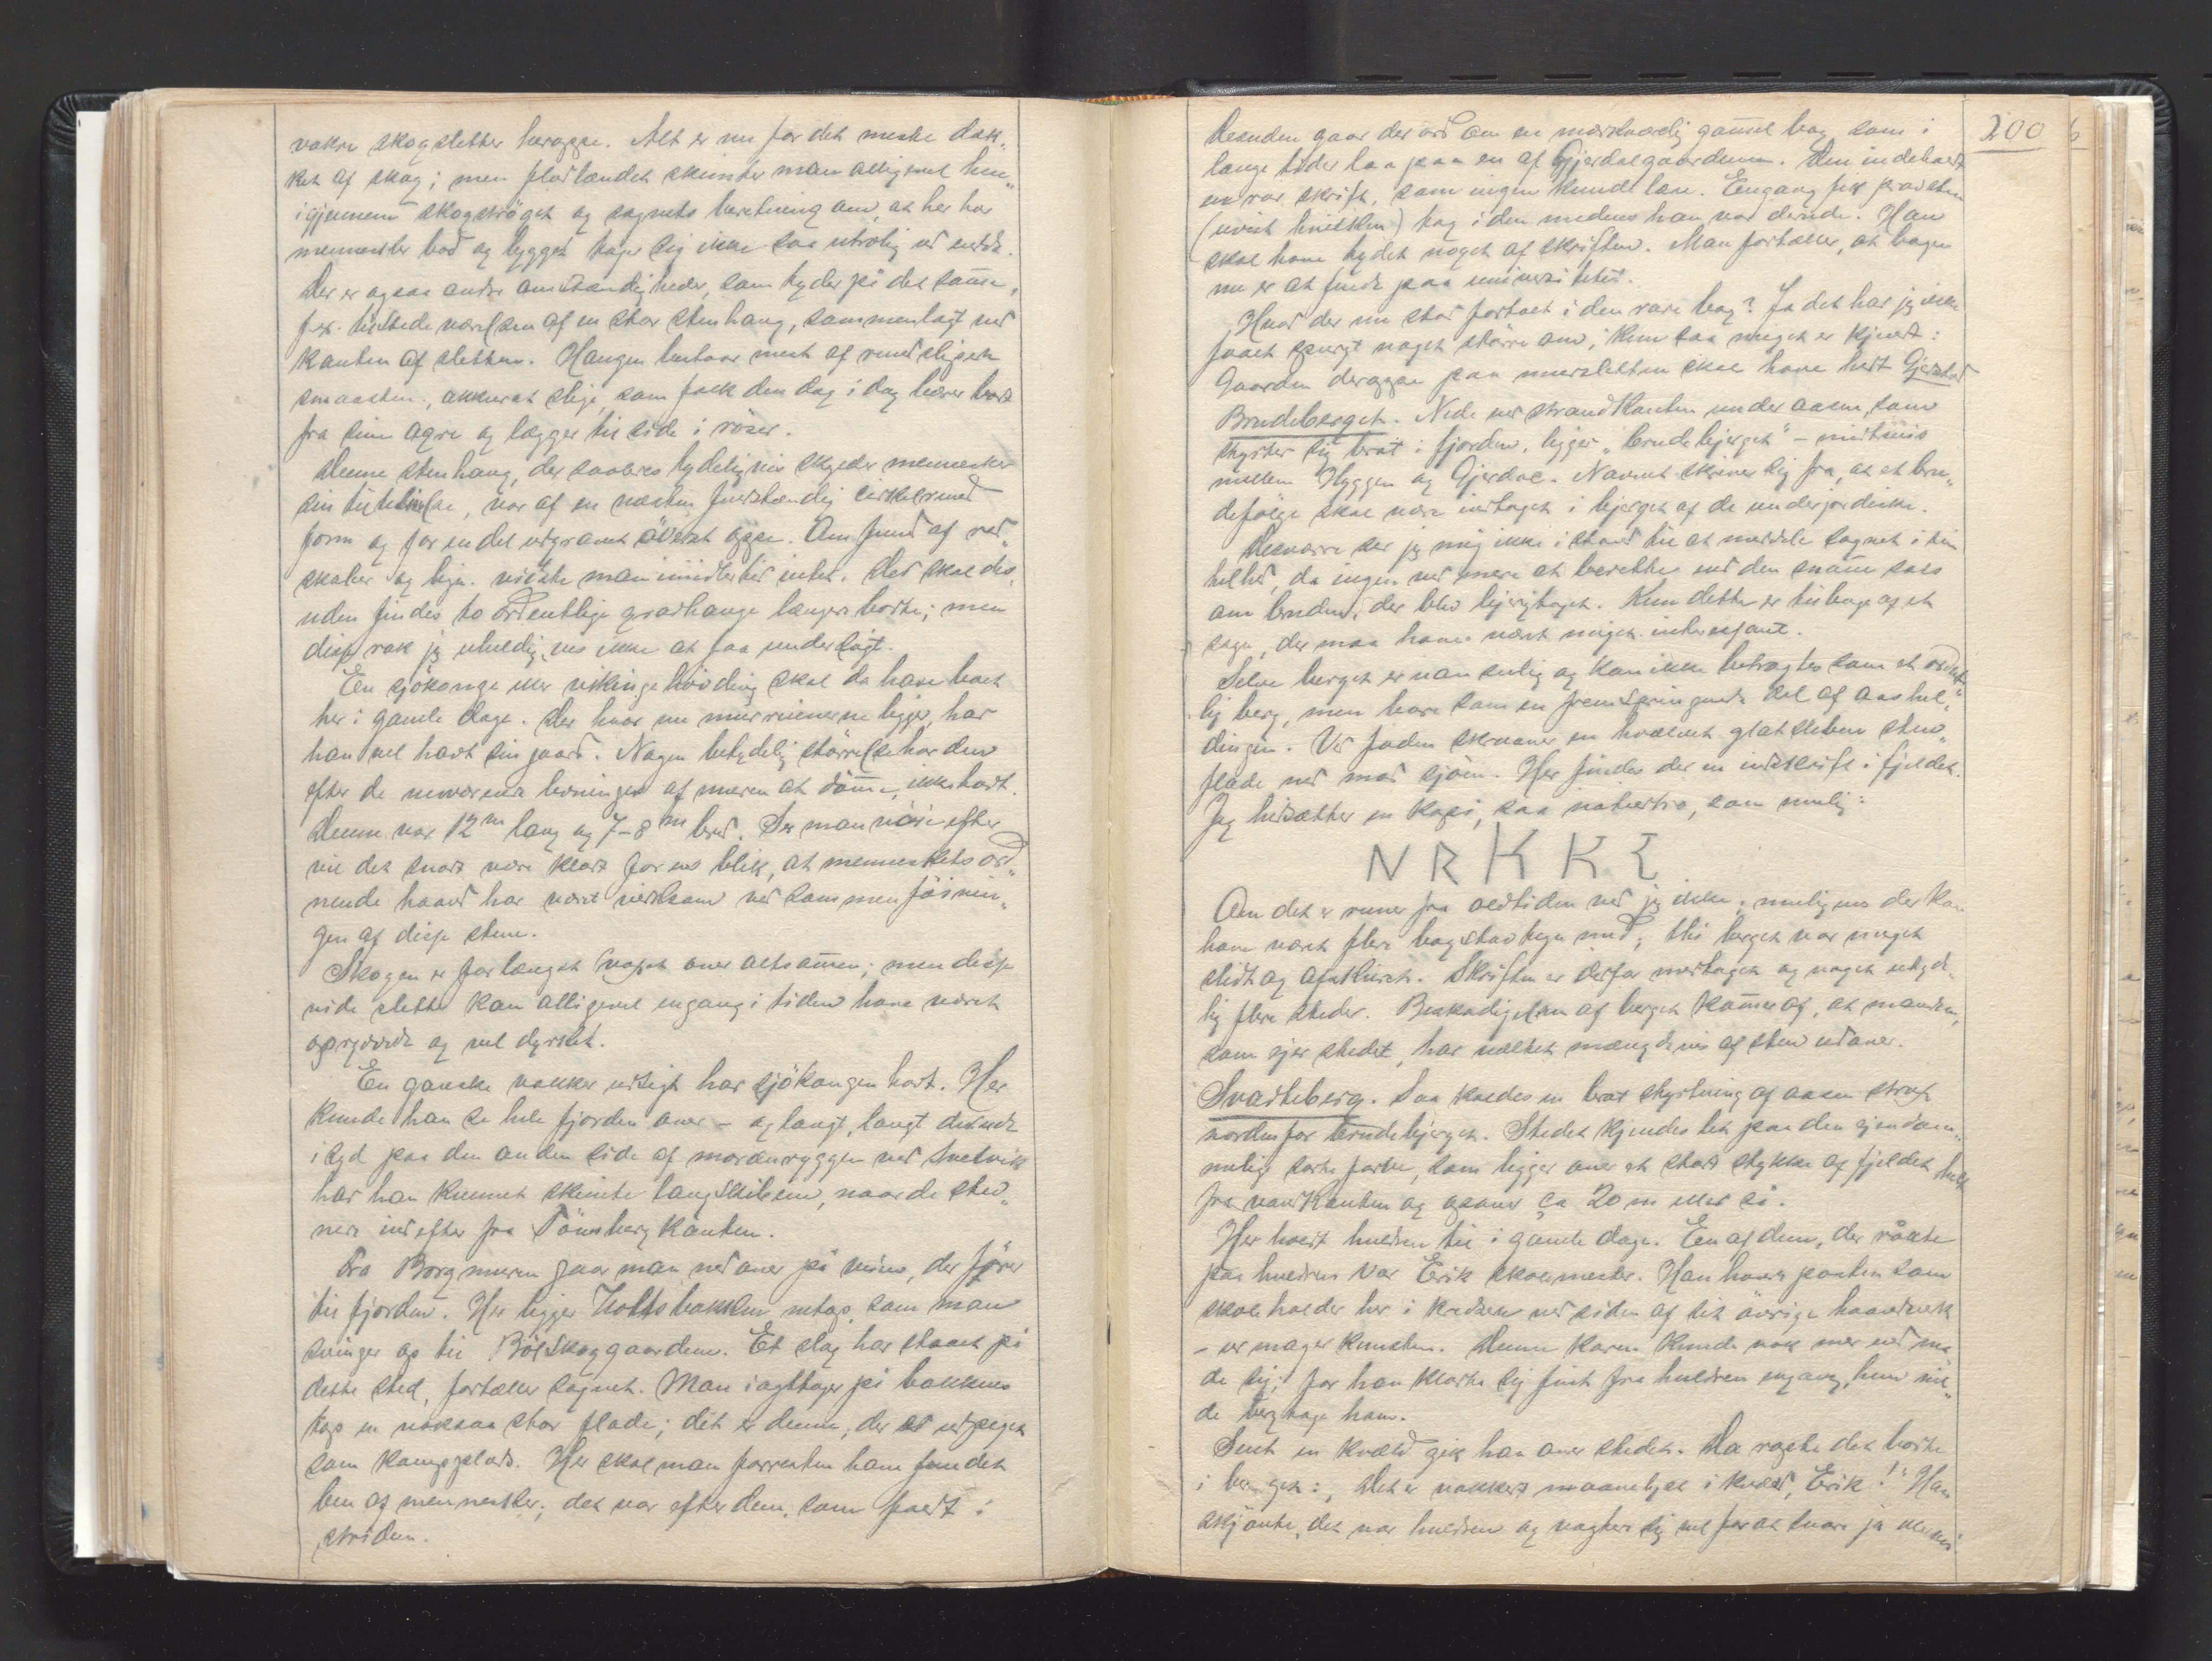 vakre skogsletter heroppe. Alt er nu for det meste dæk„
ket af skog; men flatlændet skimter man alligevel hin„
igjennem skogströget og sagnets beretning om, at her har
mennesker bod og bygget tager sig ikke saa utrolig ud endda.
Der er ogsaa andre omstændigheder, som tyder på det samme,
f.ex. tilstedeværelsen af en stor stenhaug, sammenlagt ved
kanten af sletten. Haugen bestaar mest af rund sligsen
smaasten, akkurat slige, som folk den dag i dag bærer bort
fra sine agre og lægger til side i röser.
Denne stenhaug, der saaledes tydeligvis skylder mennesker
sin tilblivelse, var af en næsten fuldstændig cirkelrund
form og for en del udgravet överst oppe. Om fund af red„
skaber og lign. vidste man imidlertid intet. Det skal des„
uden findes to ordentlige gravhauge længere borte; men
disse rak jeg uheldigvis ikke at faa undersögt.
En sjökonge eller vikingehövding skal da have boet
her i gamle dage. Der hvor nu murruinerne ligger, har
han vel havt sin gaard. Nogen betydelig störrelse har den
efter de nuværende levninger af muren at dömme, ikke havt.
Denne var 12 m lang og 7-8 m bred. Ser man nöie efter
vil det snart være klart for ens blik, at menneskets ord„
nende haand har været virksom ved sammenföinin„
gen af disse stene.
Skogen er forlængst vokset over altsammen; men disse
vide sletter kan alligevel engang i tiden have været
opryddede og vel dyrket.
En ganske vakker udsigt har sjökongen havt. Her
kunde han se hele fjorden over - og langt, langt derude
i syd paa den anden side af moræneryggen ved Svelvik
har han kunnet skimte langskibene, naar de stev„
nede indefter fra Tönsbergkanten.
Fra Borgmuren gaar man nedover på veien, der förer
til fjorden. Her ligger Holtsbakken netop, som man
svinger op til Bölskoggaardene. Et slag har staaet på
dette sted, fortæller sagnet. Man iagttager på bakkens
top en noksaa stor flade; det er denne, der er udpeget
som kampplads. Her skal man forresten have fundet
ben af mennesker; det var efter dem, som faldt i
striden.
200
Desuden gaar der ord om en mærkværdig gammel bog som i
lange tider laa paa en af Gjerdalgaardene. Den indeholdt
en rar skrift, som ingen kunde læse. Engang fik provsten
(uvist hvilken) tag i den medens han var derude. Han
skal have tydet noget af skriften. Man fortæller, at bogen
nu er at finde paa universitetet.
Hvad der nu stod fortalt i den rare bog? Ja det har jeg ikke
faaet spurgt noget större om; kun saa meget er kjendt:
Gaarden deroppe paa mursletten skal have hedt Gjerstad
Brudeberget. Nede ved strandkanten under aasen, som
styrter sig brat i fjorden, ligger „brudebjerget" - midtveis
mellem Hyggen og Gjerdal. Navnet skriver sig fra, at et bru„
defölge skal være indtaget i bjerget af de underjordiske.
Desværre ser jeg mig ikke i stand til at meddele sagnet i sin
helhed, da ingen ved mere at berette end den snaue sats
om bruden, der blev bjergtaget. Kun dette er tilbage af et
sagn, der maa have været meget interessant.
Selve berget er uanselig og kan ikke betragtes som et ordent„
lig berg, men bare som en fremspringende del af aashel„
dingen. Ved foden skraaner en hvælvet glatsleben sten„
flade ned mod sjöen. Her findes der en indskrift i fjeldet.
Jeg hidsætter en kopi, saa naturtro, som mulig:
N R K K I
Om det er runer fra oldtiden ved jeg ikke; muligens der kan
have været flere bogstavtegn med; thi berget var meget
slidt og afskuret. Skriften er derfor medtaget og noget utyde„
lig flere steder. Beskadigelsen af berget kommer af, at manden,
som ejer stedet, har væltet mængdevis af sten udover.
Svarteberg. Saa kaldes en brat styrtning af aasen strax
nordenfor brudebjerget. Stedet kjendes let paa den ejendom„
melig sorte farve, som ligger over et stort stykke af fjeldet helt
fra vandkanten og opover ca 20 m eller så.
Her holdt huldren til i gamle dage. En af dem, der raakte
paa huldren var Erik skolemester. Han havde posten som
skoleholder her i kredsen ved siden af sit övrige haandverk
- urmagerkunsten. Denne karen kunde nok mer end ma
de sig; for han klarte sig fint fra huldren engang, hun vil„
de bergtage ham.
Sent en kveld gik han over stedet. Da raabte det borte
i berget: „Det er vakkert maaneljös i kveld, Erik!" Han
skjönte, det var huldren og vogtede sig vel for at svare ja eller nei.